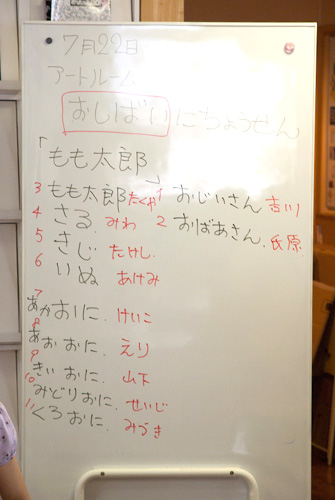 7月22日
アートルーム
おしばいにちょうせん
「もも太郎」
3 もも太郎 たくや 1 おじいさん 吉川
4 さる. みわ 2 おばあさん. 氏原
5 きじ たけし.
6 いぬ あけみ
7 あかおに. けいこ
8 あおおに. えり
9 きいおに. 山下
10 みどりおに. せいじ
11 くろおに. みづき